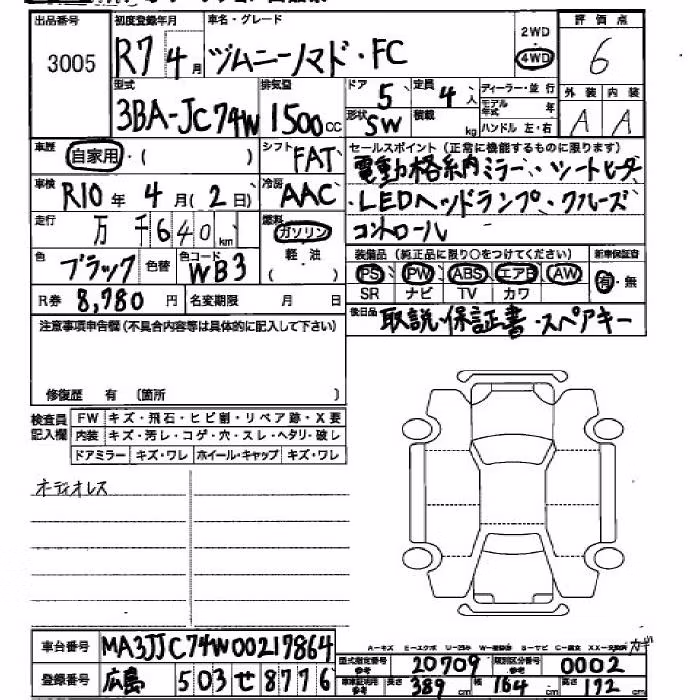 出品番号 初度登録年月 車名・グレード 2WD 評価点
3005 R7 4月 ジムニーノマド・FC 4WD 6
型式 排気量 ドア 5 定員 4人 ディーラー・並行 外装 内装
3BA-JC74W 1500cc 形状 SW 積載 kg モデル年式 年 A A
ハンドル 左・右
車歴 自家用・( ) シフト FAT セールスポイント(正常に機能するものに限ります)
車検 R10年 4月(2日) 冷房 AAC 電動格納ミラー・シートヒーター
走行 万 千640km 燃料 ガソリン ・LEDヘッドランプ・クルーズ
軽油 コントロール
( )
色 ブラック 色替 色コード WB3 装備品(純正品に限り○をつけてください) 新車保証書
PS PW ABS エアB AW 有・無
R券 8,980円 名変期限 月 日 SR ナビ TV カワ
注意事項申告欄(不具合内容等は具体的に記入して下さい) 後日品 取説・保証書・スペアキー
修復歴 有 〔箇所 〕
検査員記入欄 FW キズ・飛石・ヒビ割・リペア跡・X要
内装 キズ・汚レ・コゲ・穴・スレ・ヘタリ・破レ
ドアミラー キズ・ワレ ホイール・キャップ キズ・ワレ
オーディオレス
車台番号 MA3JJC74W00217864 A-キズ E-エクボ
登録番号 広島 503 せ 8776 型式指定番号 参考 20709 類別区分番号 参考 0002
車車証明用 参考 長さ 389cm 幅 164cm 高さ 172cm